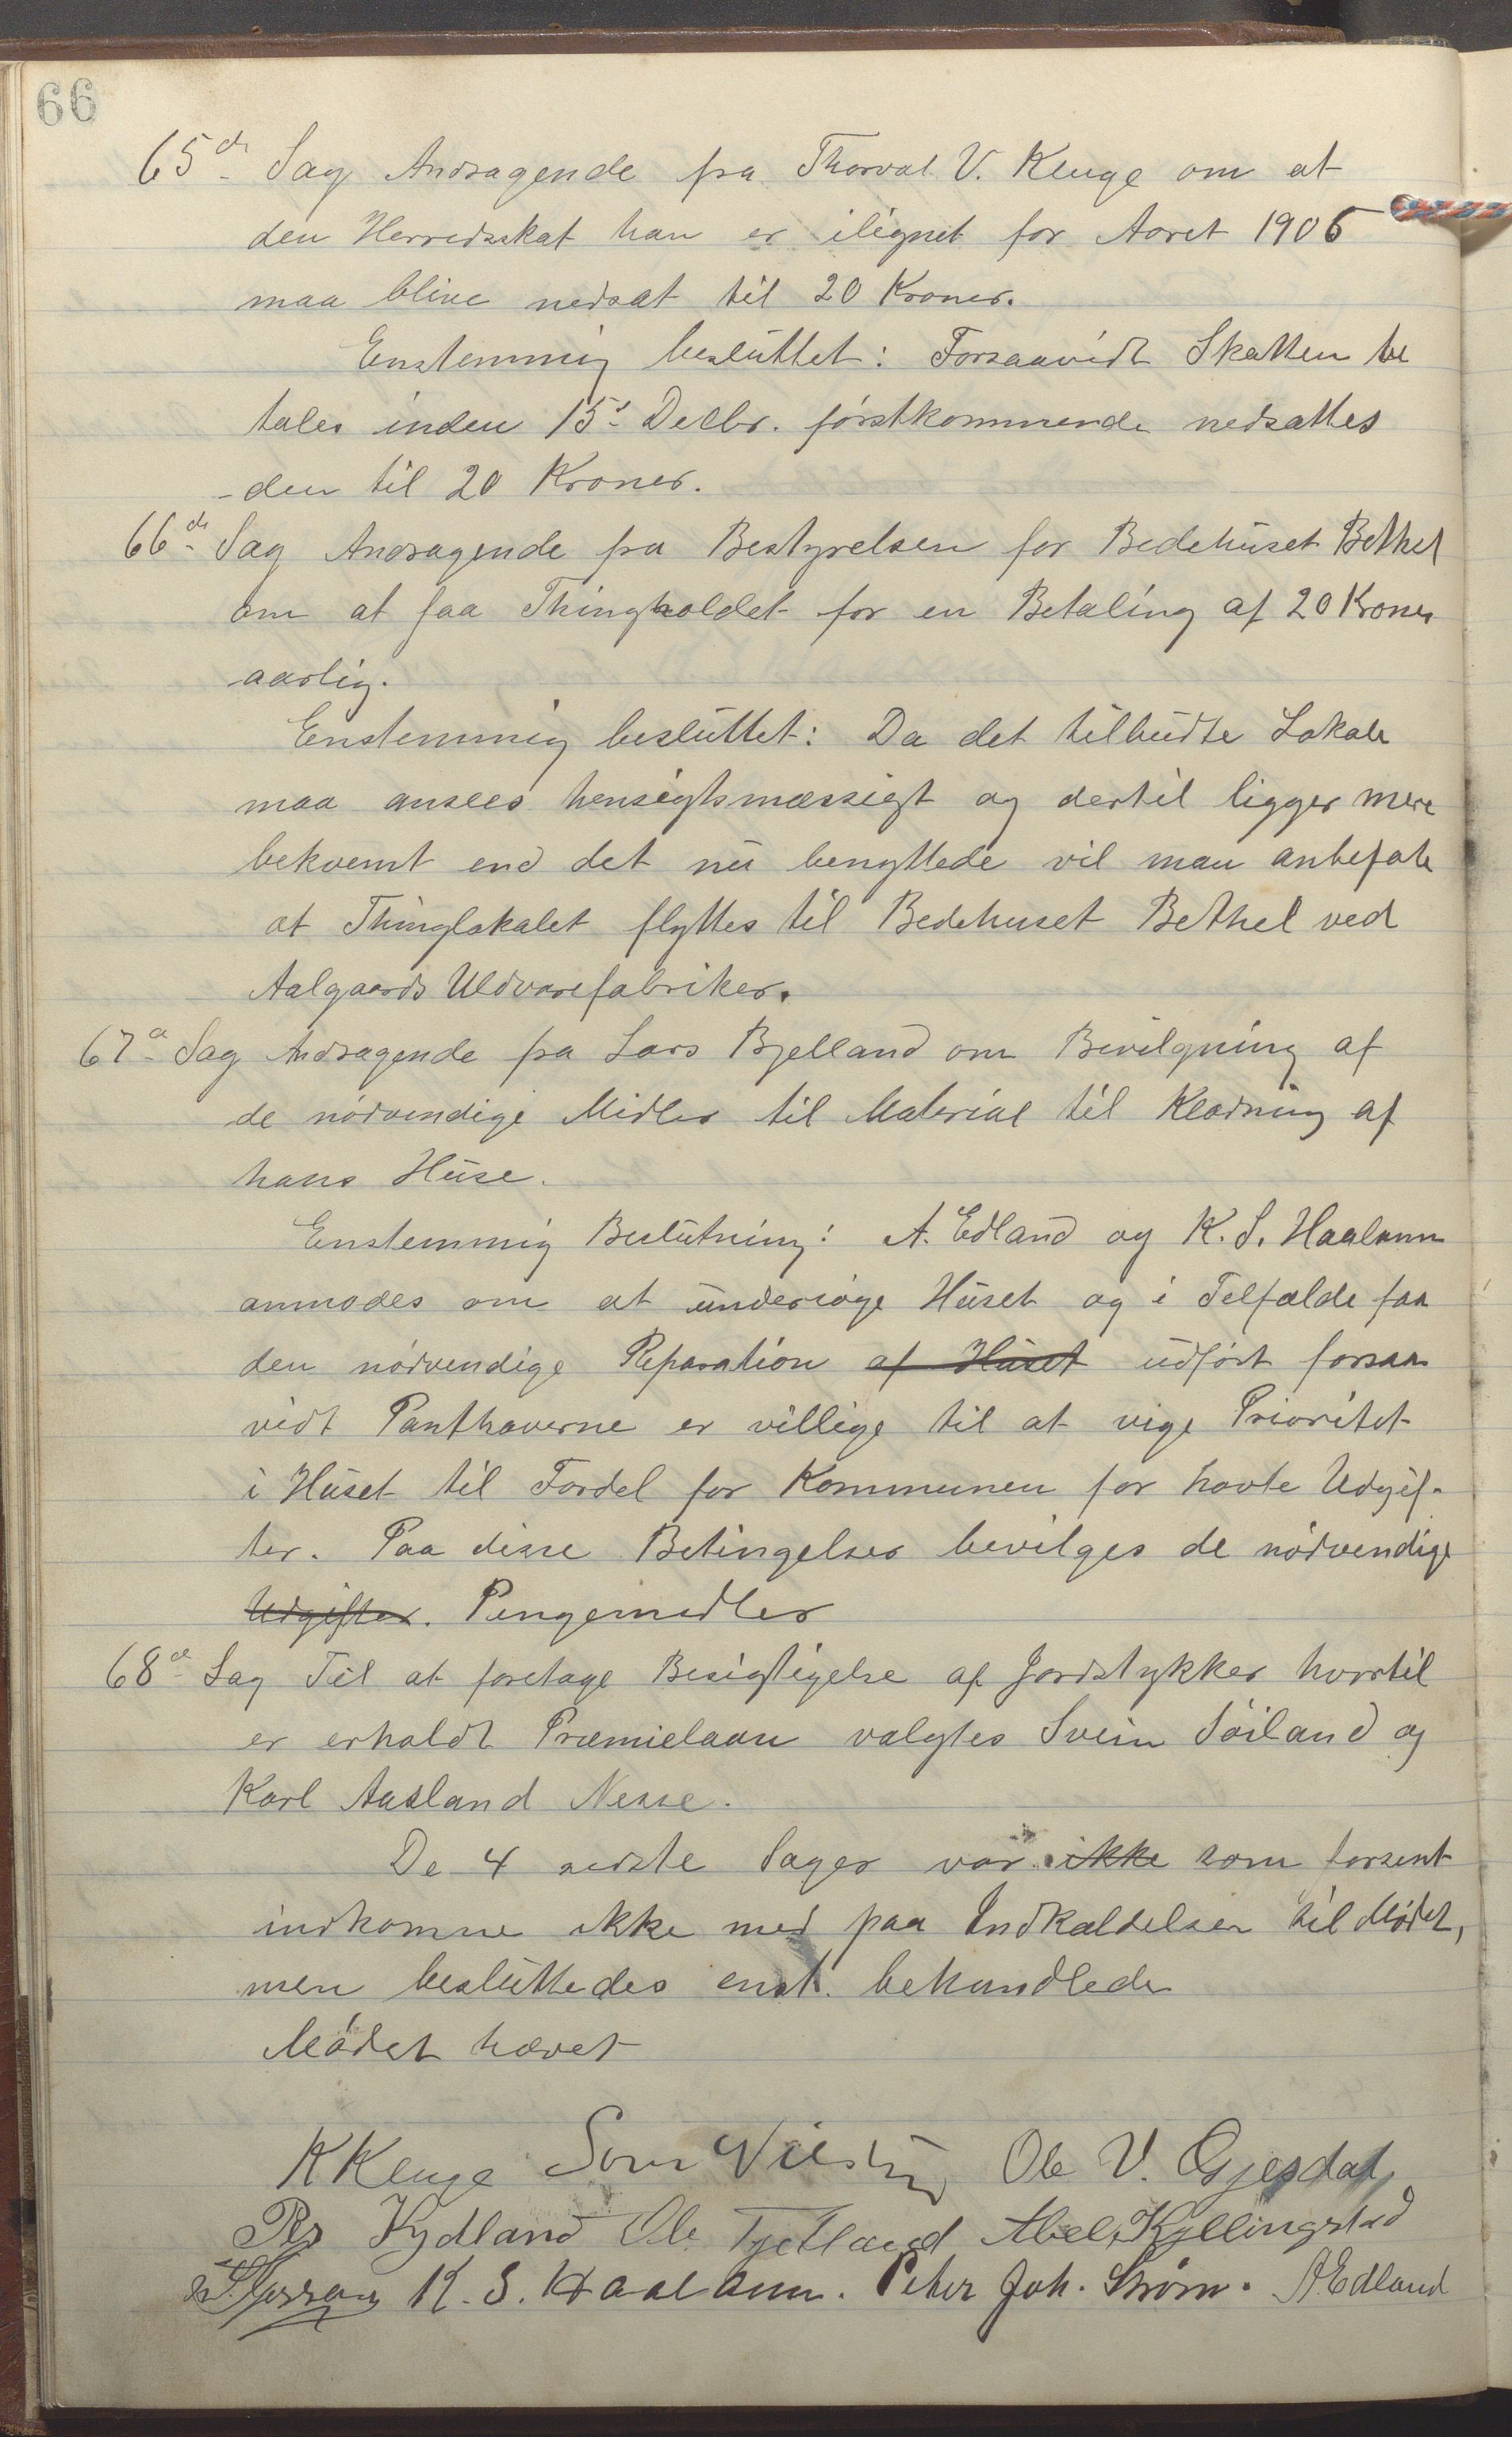 66
65de Sag Andragende fra Thorval V. Kluge om at
den Herredsskat han er ilignet for Aaret 1906
maa blive nedsat til 20 Kroner.
Enstemmig besluttet: Forsaavidt Skatten be
tales inden 15de Decbr. førstkommende nedsattes
den til 20 Kroner.
66de Sag Andragende fra Bestyrelsen for Bedehuset Bethel
om at faa Thingholdet for en Betaling af 20 Kroner
aarlig.
Enstemmig besluttet: Da det tilbudte Lokale
maa ansees hensigtsmæssigt og dertil ligger mere
bekvemt end det nu benyttede vil man anbefale
at Thinglokalet flyttes til Bedehuset Bethel ved
Aalgaards Uldvarefabriker.
67de Sag Andragende fra Lars Bjelland om Bevilgning af
de nødvendige Midler til Material til Klædning af
hans Huse.
Enstemmig Beslutning: A. Edland og K. S. Haaland
anmodes om at undersøge Huset og i Tilfælde faa
den nødvendige Reparation af Huset udført forsaa
vidt Panthaverne er villige til at vige Prioritet
i Huset til Fordel for Kommunen for havte Udgif-
ter. Paa disse Betingelser bevilges de nødvendige
Udgifter. Pengemidler
68de Sag Til at foretage Besigtigelse af Jordstykker hvortil
er erholdt Præmielaan valgtes Svein Søiland og
Karl Aasland Nesse.
De 4 sidste Sager var ikke som forsent
indkomne ikke med paa Indkaldelsen til Mødet,
men besluttedes enst. behandlede
Mødet hævet
K Kluge Ole V. Gjesdal
Rs Kydland Ole Tjetland Abel Kyllingstad
K. S. Haaland. Peter Joh. Strøm. A Edland